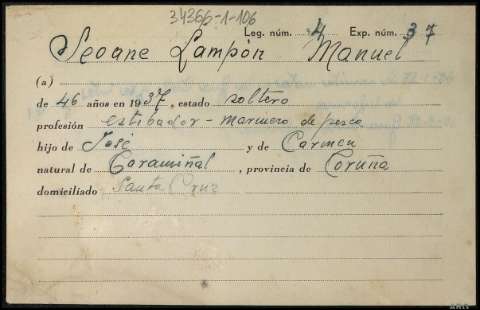 34366-1-106
Leg. núm. 4 Exp. núm. 37
Seoane Lampón Manuel
(a)
de 46 años en 1937, estado soltero
profesión estibador - marinero de pesca
hijo de José y de Carmen
natural de Caramiñal, provincia de Coruña
domiciliado Santa Cruz